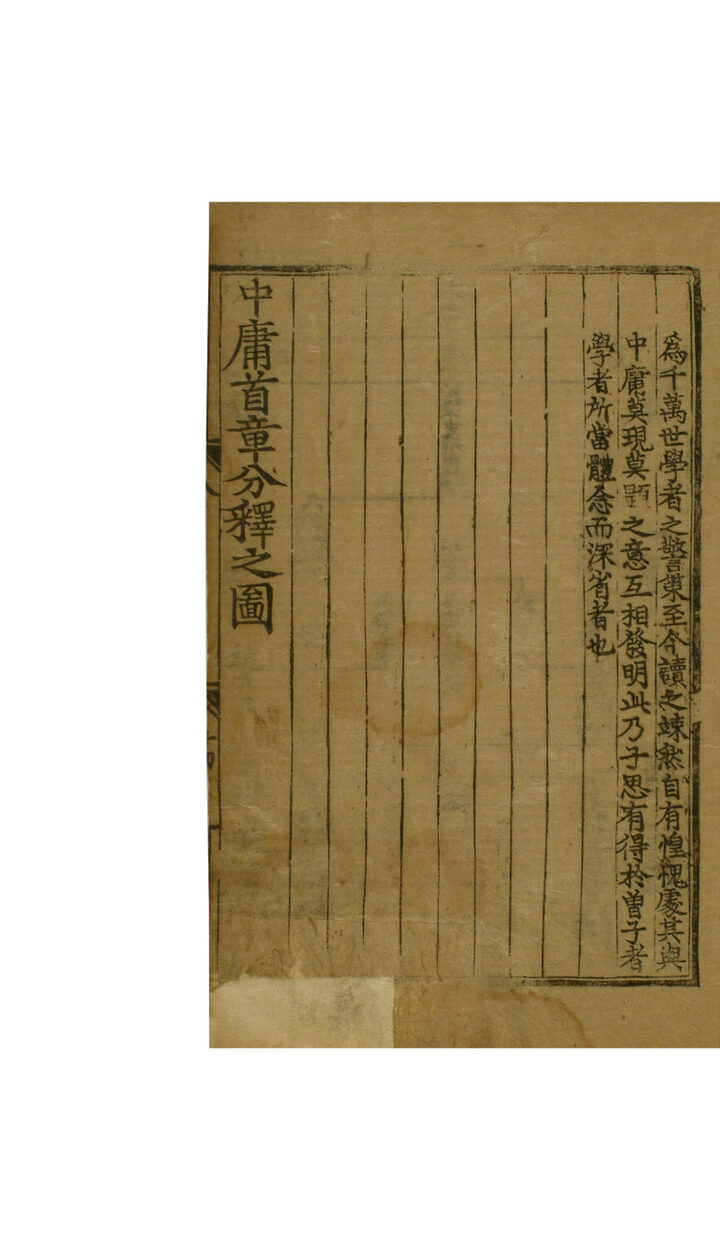 爲千萬世學者之警策至今讀之竦然自有惶愧處其與
中庸莫現莫顯之意互相發明此乃子思有得於曾子者
學者所當體念而深省者也
中庸首章分釋之圖